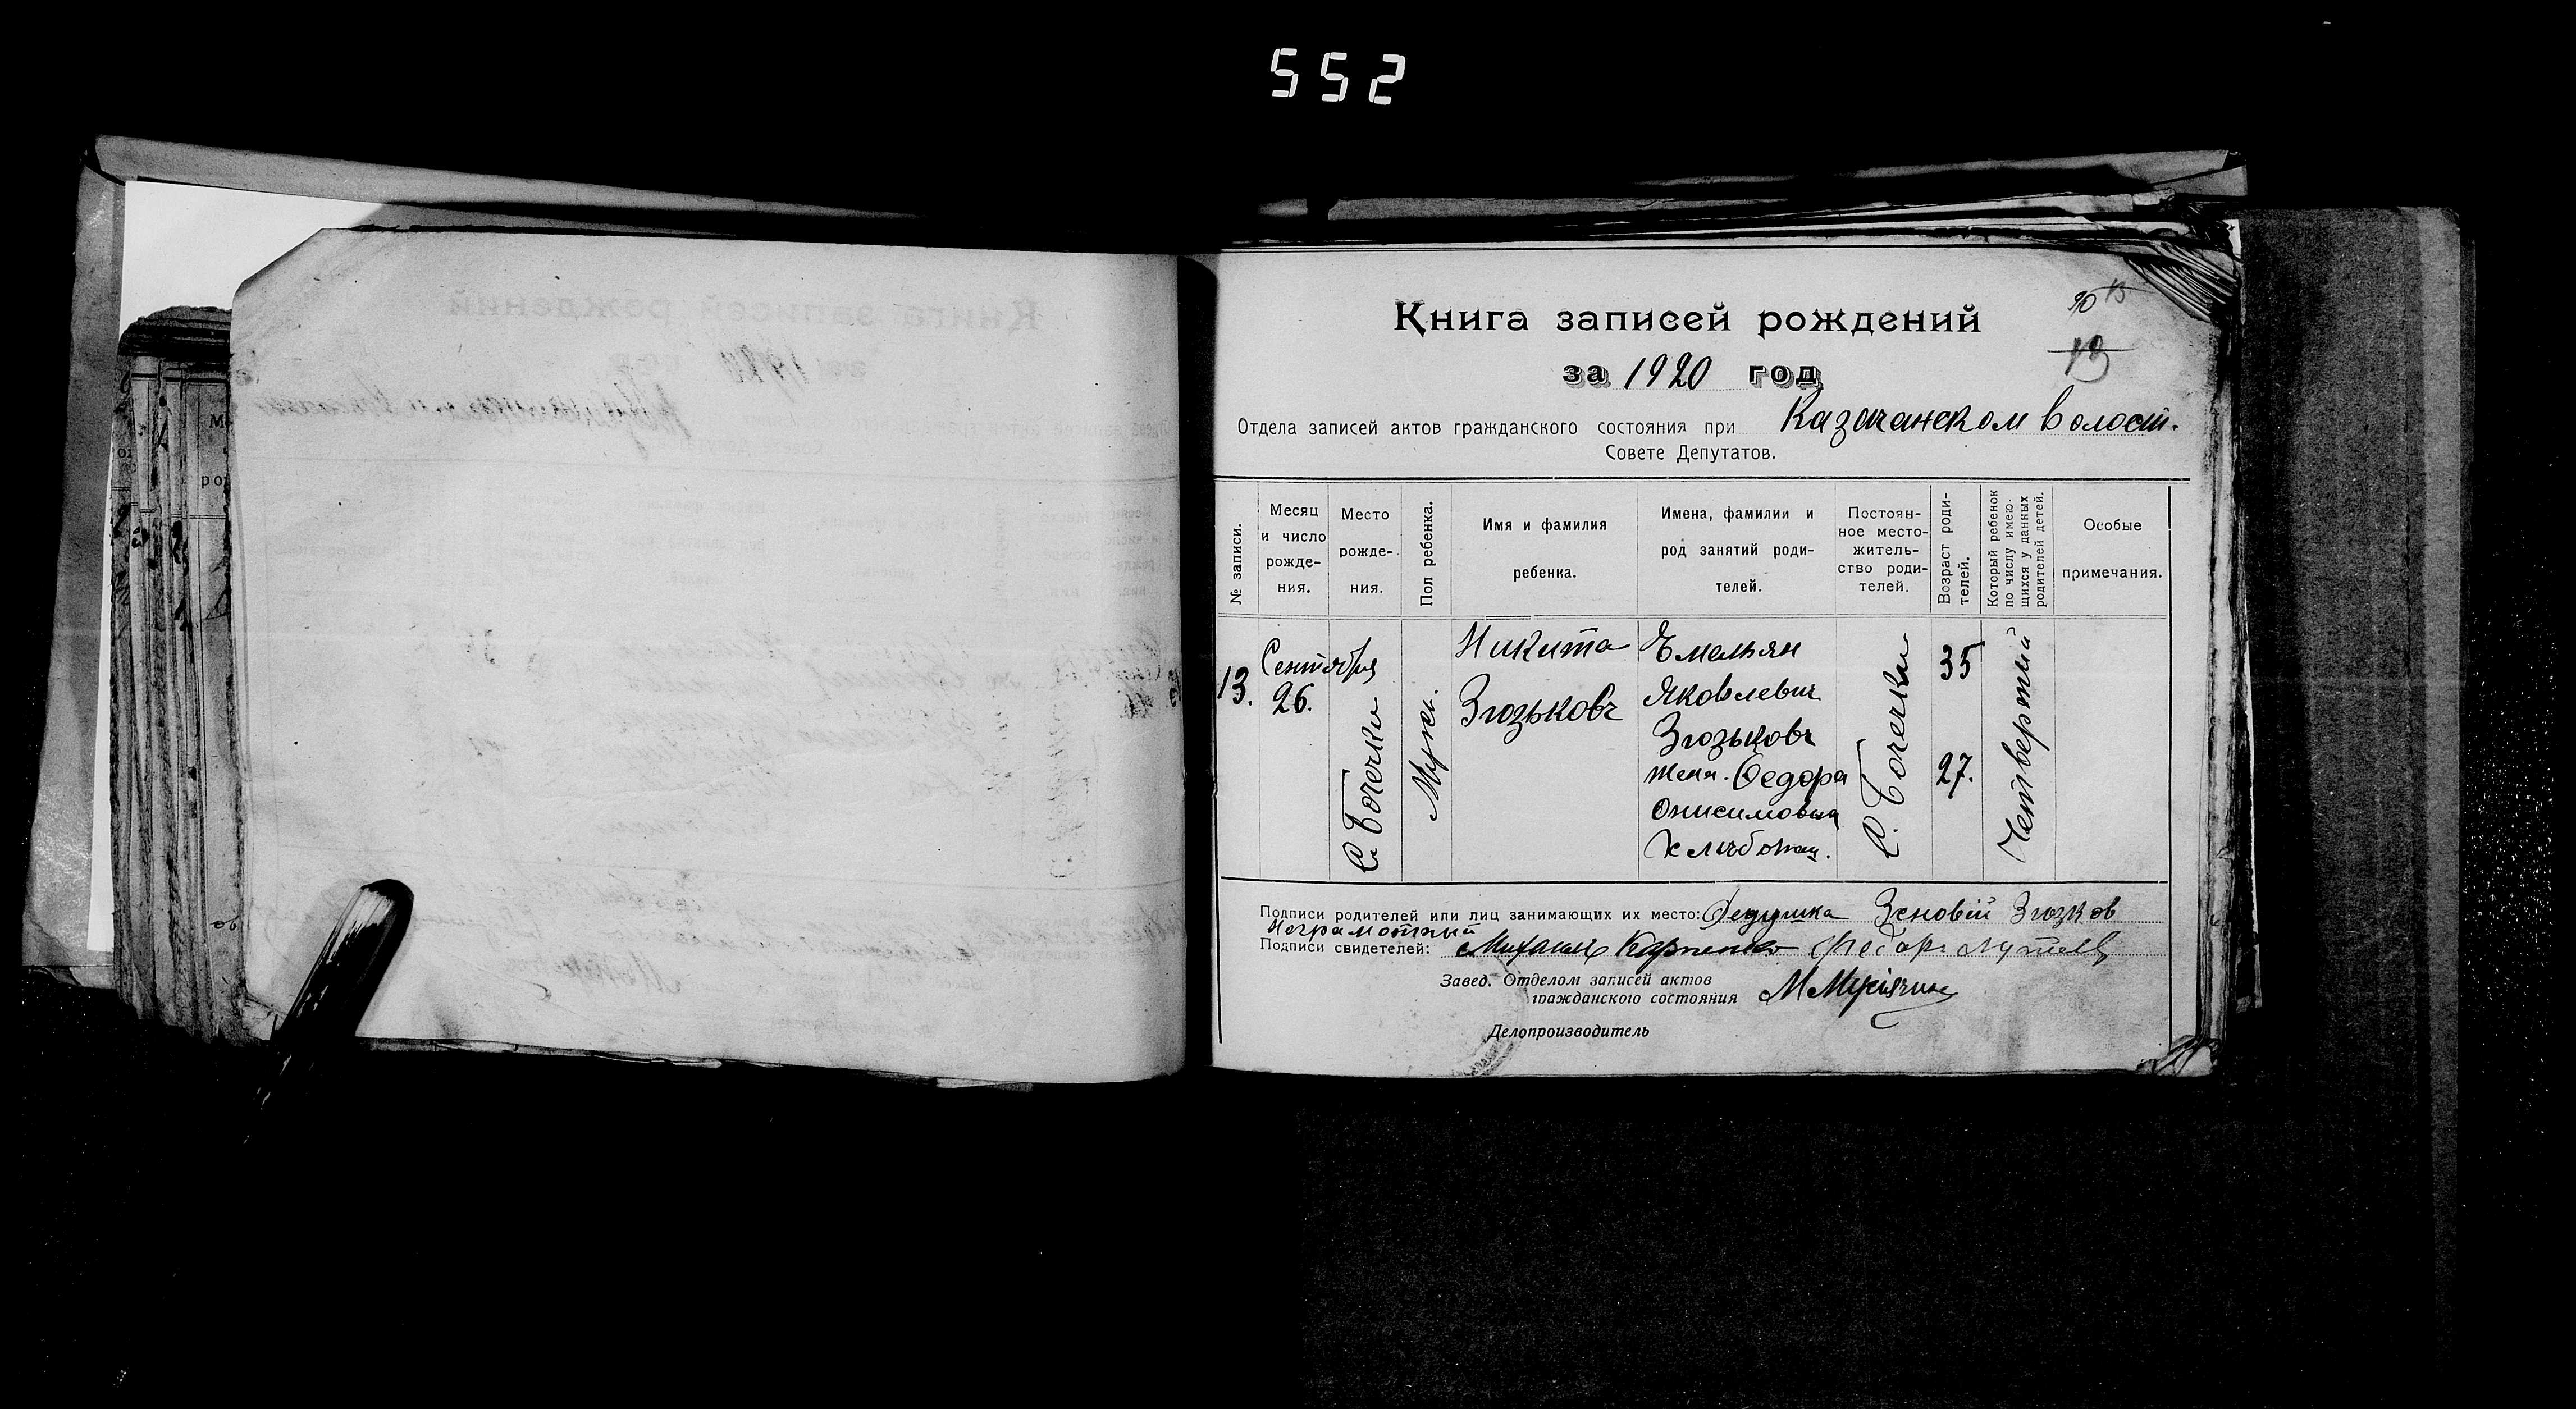 552
Книга записей рождений
13
за 1920 год
Отдела записей актов гражданского состояния при Казачанском Волост.
Совете Депутатов.
№ записи.
Месяц и число рожде-ния.
Место рожде-ния.
Пол ребенка.
Имя и фамилия ребенка.
Имена, фамилии и род занятий роди-телей.
Постоян-ное место-житель-ство роди-телей.
Возраст роди-телей.
Который ребенок по числу имею-щихся у данных родителей детей.
Особые примечания.
13.
Сентября
26.
с. Бочечки
Мужс.
Никита
Зюзьковъ
Емельян
Яковлевич
Зюзьковъ
жена. Федора
Онисимовна
Хлѣбопаш.
С. Бочечки
35
27.
Четвертый
Подписи родителей или лиц занимающих их место: Дедушка Зеновій Зюзков
Неграмотный
Подписи свидетелей: Михаил Карпенко Федор
Завед. Отделом записей актов
гражданского состояния
Делопроизводитель